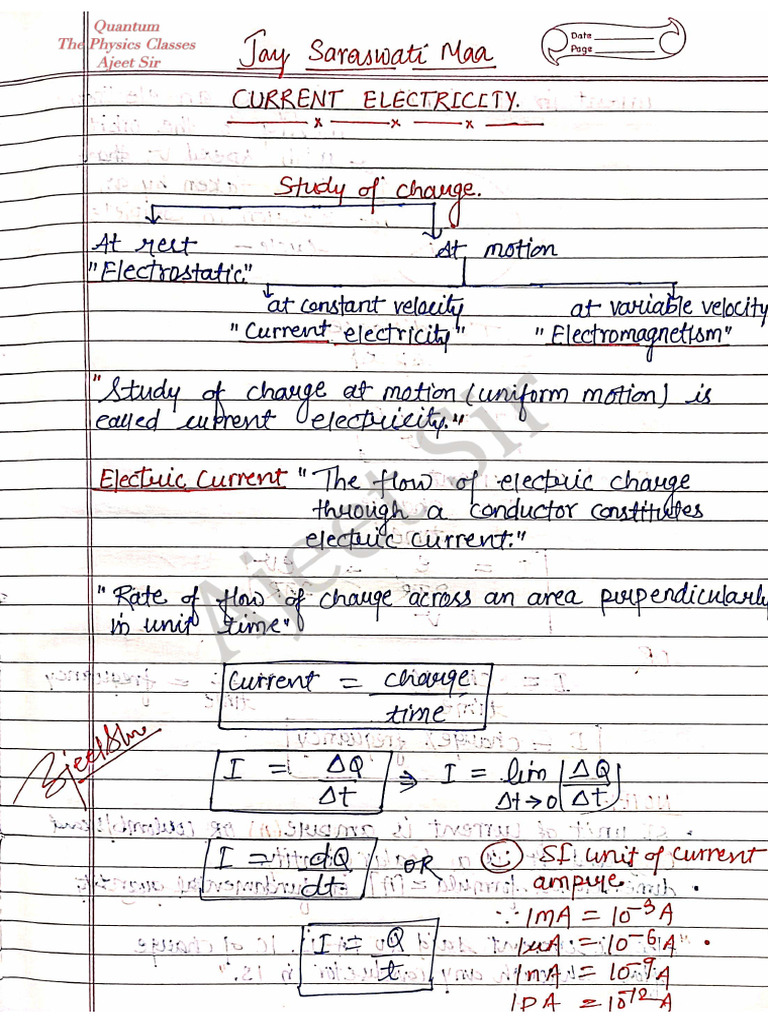 Quantum
The Physics Classes
Ajeet Sir
Jay Saraswati Maa
Date
Page
CURRENT ELECTRICITY.
Study of charge.
At rest
At motion
"Electrostatic"
at constant velocity
at variable velocity
"Current electricity"
"Electromagnetism"
"Study of charge at motion (uniform motion) is
called current electricity."
Electric Current "The flow of electric charge
through a conductor constitutes
electric current."
"Rate of flow of charge across an area perpendicularly
in unit time"
Current = charge / time
I = ΔQ/Δt ⇒ I = lim Δt→0 (ΔQ/Δt)
I = dQ/dt OR
I = Q/t
SI unit of current
ampere
∵ 1mA = 10⁻³A
1μA = 10⁻⁶A
1nA = 10⁻⁹A
1PA = 10⁻¹²A
Ajeet Sir